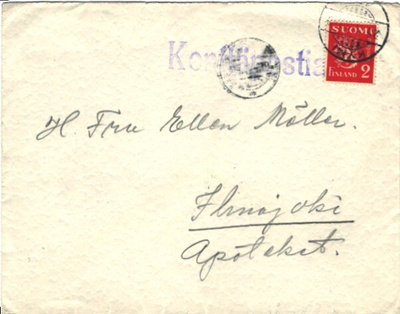 SUOMI
FINLAND 2
H. Fru Ellen Möller.
Ilmajoki
Apoteket.